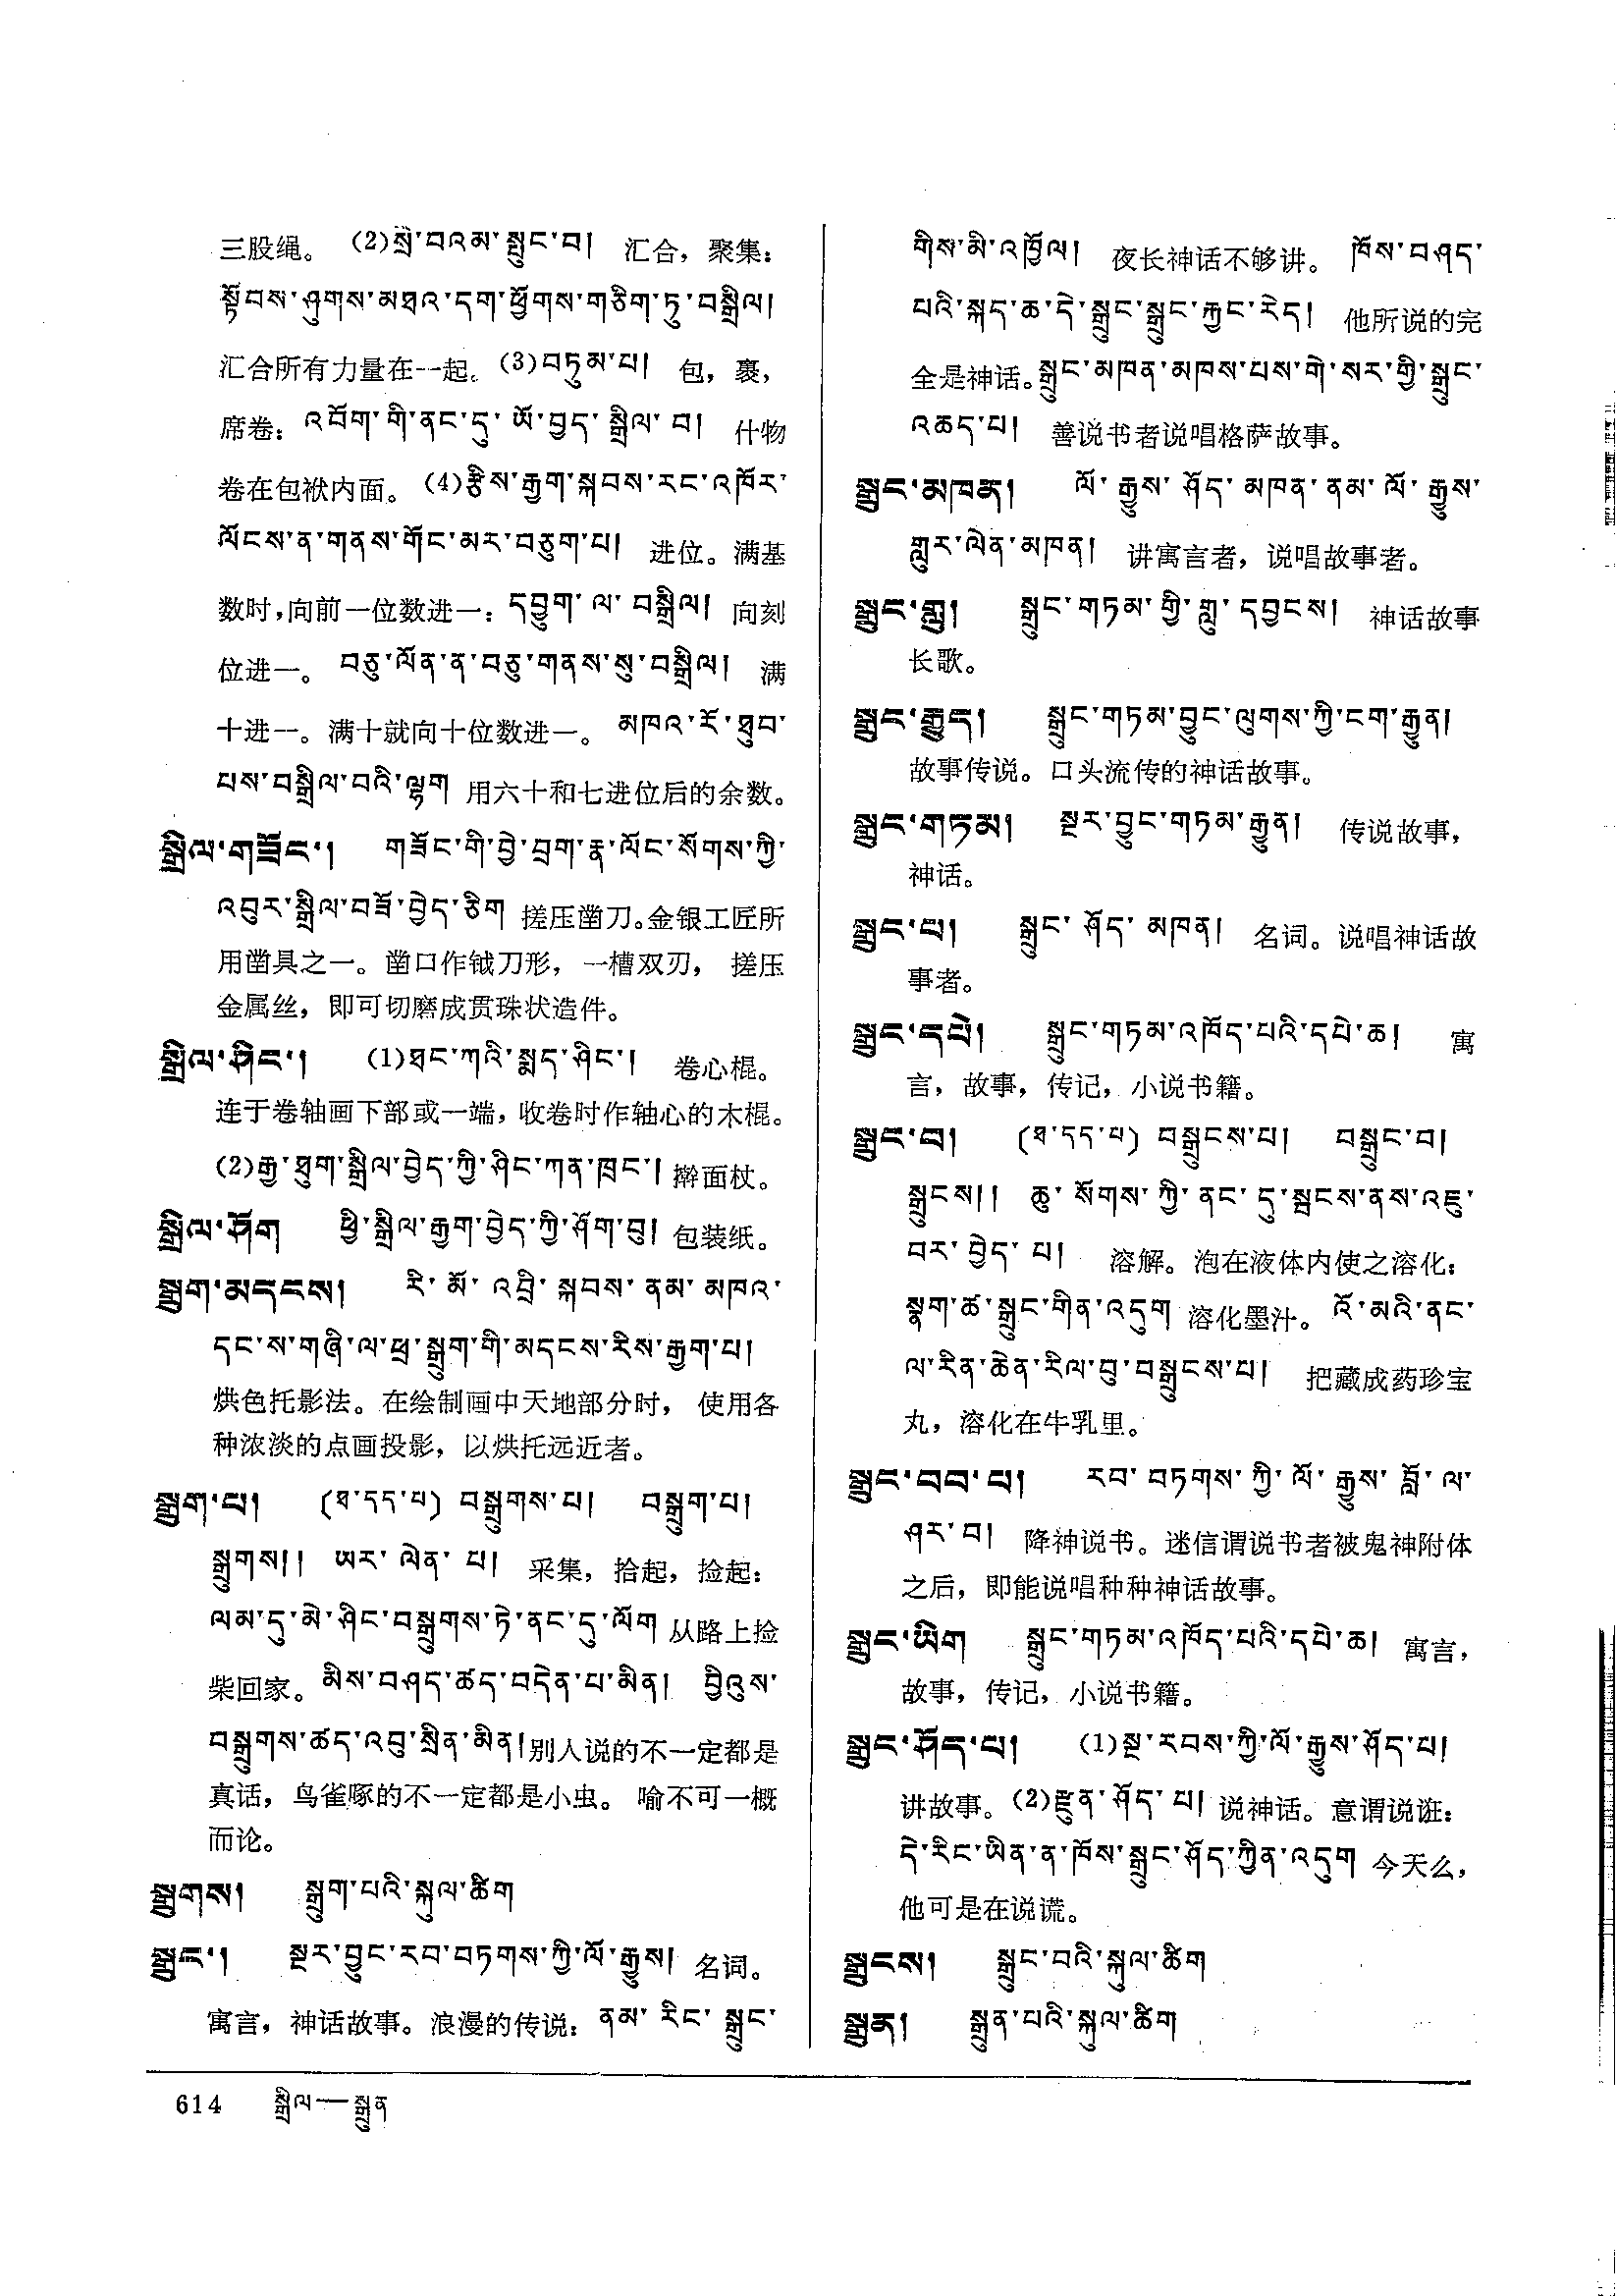 三股绳。 (2)སྲེ་བའམ་སྤུང་བ། 汇合，聚集：
སྟོབས་ཤུགས་མཐའ་དག་ཕྱོགས་གཅིག་ཏུ་བསྒྲིལ།
汇合所有力量在一起。(3)བཏུམ་པ། 包，裹，
席卷：འབོག་གི་ནང་དུ་ཡོ་བྱད་སྒྲིལ་བ། 什物
卷在包袱内面。(4)རྩིས་རྒྱག་སྐབས་རང་འཁོར་
ལོངས་ན་གནས་གོང་མར་བཅུག་པ། 进位。满基
数时，向前一位数进一：དབྱུག་ལ་བསྒྲིལ། 向刻
位进一。 བཅུ་ལོན་ན་བཅུ་གནས་སུ་བསྒྲིལ། 满
十进一。满十就向十位数进一。 མཁའ་རོ་ཐུབ་
པས་བསྒྲིལ་བའི་ལྷག 用六十和七进位后的余数。
སྒྲིལ་གཟོང་། གཟོང་གི་བྱེ་བྲག་རྣ་ལོང་སོགས་ཀྱི་
འབུར་སྒྲིལ་བཟོ་བྱེད་ཅིག 搓压凿刀。金银工匠所
用凿具之一。凿口作钺刀形，一槽双刃， 搓压
金属丝，即可切磨成贯珠状造件。
སྒྲིལ་ཤིང་། (1)ཐང་ཀའི་སྨད་ཤིང་། 卷心棍。
连于卷轴画下部或一端，收卷时作轴心的木棍。
(2)རྒྱ་ཐུག་སྒྲིལ་བྱེད་ཀྱི་ཤིང་ཀན་ཁྲང་། 擀面杖。
སྒྲིལ་ཤོག ཕྱི་སྒྲིལ་རྒྱག་བྱེད་ཀྱི་ཤོག་བུ། 包装纸。
སྒྲུག་མདངས། རི་མོ་འབྲི་སྐབས་ནམ་མཁའ་
དང་ས་གཞི་ལ་ཕྲ་སྒྲུག་གི་མདངས་རིས་རྒྱག་པ།
烘色托影法。在绘制画中天地部分时， 使用各
种浓淡的点画投影，以烘托远近者。
སྒྲུག་པ། (ཐ་དད་པ) བསྒྲུགས་པ། བསྒྲུག་པ།
སྒྲུགས།། ཡར་ལེན་པ། 采集，拾起，捡起：
ལམ་དུ་མེ་ཤིང་བསྒྲུགས་ཏེ་ནང་དུ་ལོག 从路上捡
柴回家。མིས་བཤད་ཚད་བདེན་པ་མིན། བྱིའུས་
བསྒྲུགས་ཚད་འབུ་སྲིན་མིན། 别人说的不一定都是
真话，鸟雀啄的不一定都是小虫。 喻不可一概
而论。
སྒྲུགས། སྒྲུག་པའི་སྐུལ་ཚིག
སྒྲུང་། སྔར་བྱུང་རབ་བཏགས་ཀྱི་ལོ་རྒྱུས། 名词。
寓言，神话故事。浪漫的传说：ནམ་རིང་སྒྲུང་
གིས་མི་འཁྱོལ། 夜长神话不够讲。 ཁོས་བཤད་
པའི་སྐད་ཆ་དེ་སྒྲུང་སྒྲུང་རྐྱང་རེད། 他所说的完
全是神话。སྒྲུང་མཁན་མཁས་པས་གེ་སར་གྱི་སྒྲུང་
འཆད་པ། 善说书者说唱格萨故事。
སྒྲུང་མཁན། ལོ་རྒྱུས་ཤོད་མཁན་ནམ་ལོ་རྒྱུས་
གླུར་ལེན་མཁན། 讲寓言者，说唱故事者。
སྒྲུང་གླུ། སྒྲུང་གཏམ་གྱི་གླུ་དབྱངས། 神话故事
长歌。
སྒྲུང་རྒྱུད། སྒྲུང་གཏམ་བྱུང་ལུགས་ཀྱི་ངག་རྒྱུན།
故事传说。口头流传的神话故事。
སྒྲུང་གཏམ། སྔར་བྱུང་གཏམ་རྒྱུན། 传说故事，
神话。
སྒྲུང་པ། སྒྲུང་ཤོད་མཁན། 名词。说唱神话故
事者。
སྒྲུང་དཔེ། སྒྲུང་གཏམ་འཁོད་པའི་དཔེ་ཆ། 寓
言，故事，传记，小说书籍。
སྒྲུང་བ། (ཐ་དད་པ) བསྒྲུངས་པ། བསྒྲུང་བ།
སྒྲུངས།། ཆུ་སོགས་ཀྱི་ནང་དུ་སྦངས་ནས་འཇུ་
བར་བྱེད་པ། 溶解。泡在液体内使之溶化：
སྣག་ཚ་སྒྲུང་གིན་འདུག 溶化墨汁。 འོ་མའི་ནང་
ལ་རིན་ཆེན་རིལ་བུ་བསྒྲུངས་པ། 把藏成药珍宝
丸，溶化在牛乳里。
སྒྲུང་བབ་པ། རབ་བཏགས་ཀྱི་ལོ་རྒྱུས་བློ་ལ་
ཤར་བ། 降神说书。迷信谓说书者被鬼神附体
之后，即能说唱种种神话故事。
སྒྲུང་ཡིག སྒྲུང་གཏམ་འཁོད་པའི་དཔེ་ཆ། 寓言，
故事，传记，小说书籍。
སྒྲུང་ཤོད་པ། (1)སྔ་རབས་ཀྱི་ལོ་རྒྱུས་ཤོད་པ།
讲故事。(2)རྫུན་ཤོད་པ། 说神话。意谓说诳：
དེ་རིང་ཡིན་ན་ཁོས་སྒྲུང་ཤོད་ཀྱིན་འདུག 今天么，
他可是在说谎。
སྒྲུངས། སྒྲུང་བའི་སྐུལ་ཚིག
སྒྲུན། སྒྲུན་པའི་སྐུལ་ཚིག
614 སྒྲིལ—སྒྲུན